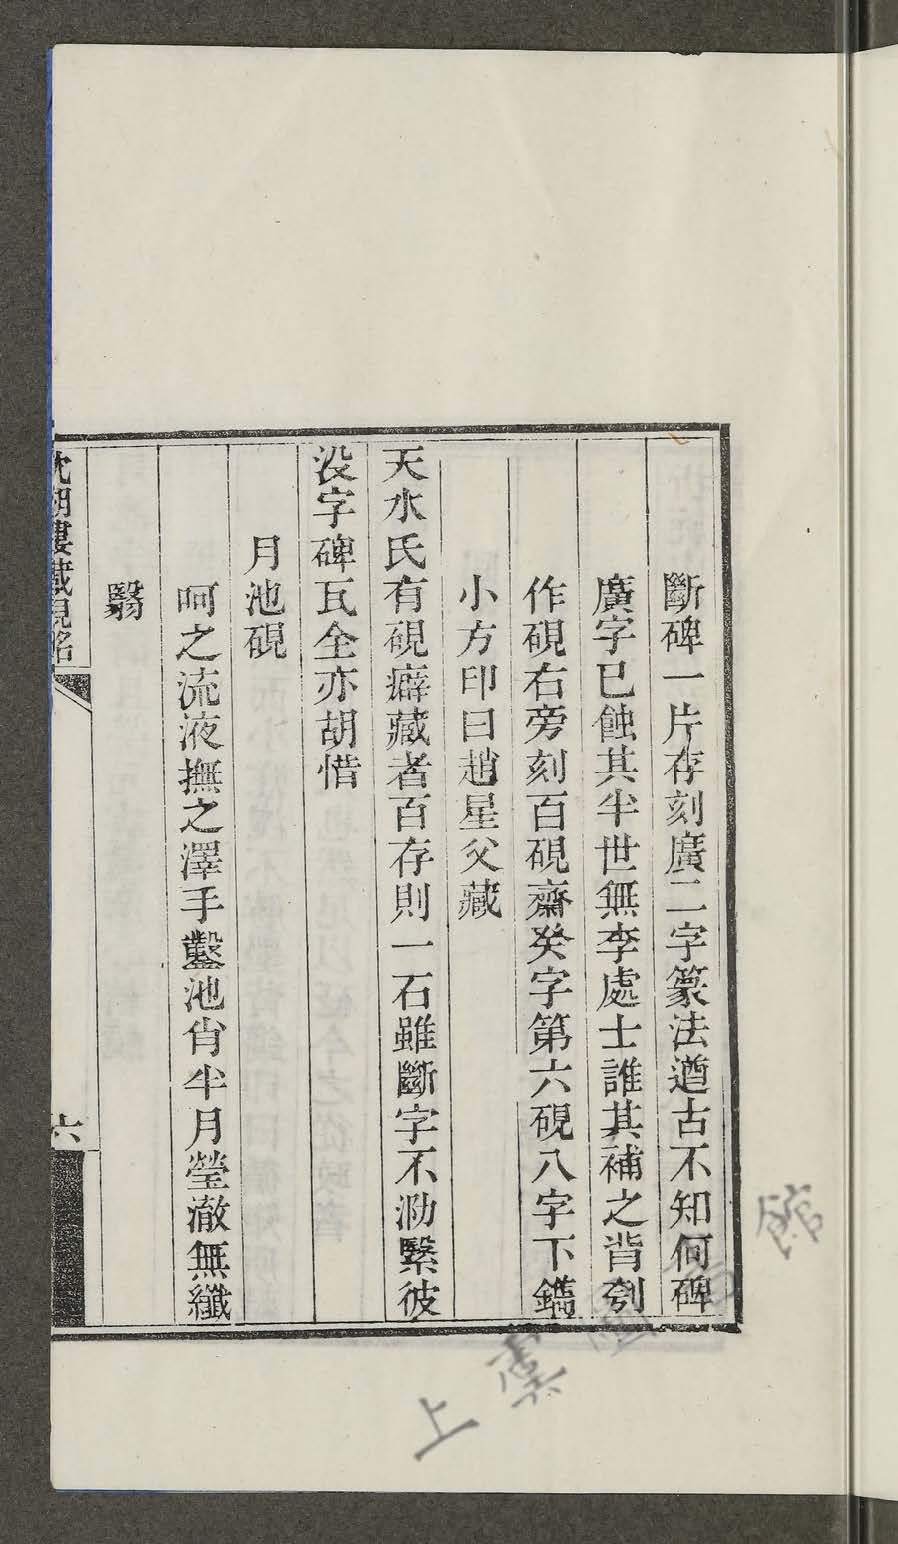 斷碑一片存刻廣二字篆法遒古不知何碑
廣字已蝕其半世無李處士誰其補之背刳
作硯右旁刻百硯齋癸字第六硯八字下鐫
小方印曰趙星父藏
天水氏有硯癖藏者百存則一石雖斷字不泐緊彼
没字碑瓦全亦胡惜
月池硯
呵之流液撫之澤手鑿池肖半月瑩澈無纖
翳
沈湖樓藏硯銘
六
上虞圖書館